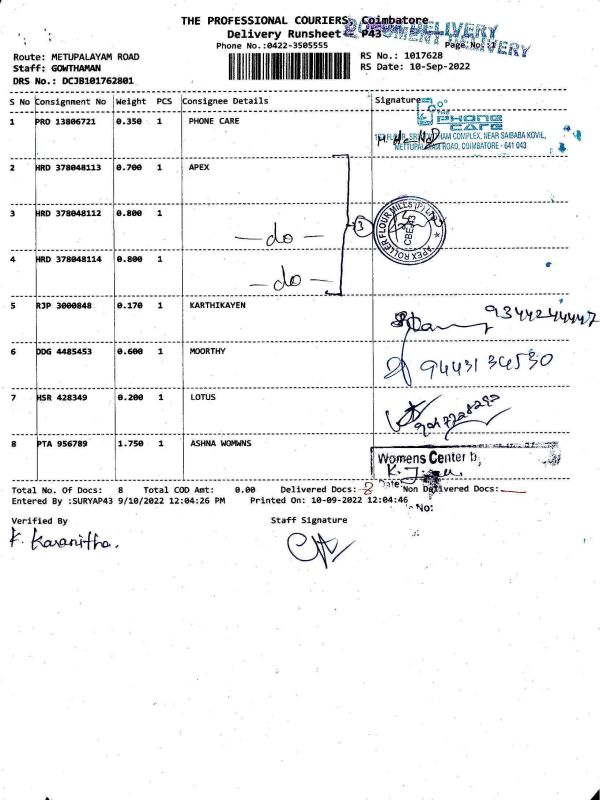 THE PROFESSIONAL COURIERS, Coimbatore
Delivery Runsheet - P43
DOCUMENT DELIVERY
Phone No.:0422-3505555
Page No.:1
Route: METUPALAYAM ROAD
RS No.: 1017628
Staff: GOWTHAMAN
RS Date: 10-Sep-2022
DRS No.: DCJB101762801
S No Consignment No Weight PCS Consignee Details Signature
1 PRO 13806721 0.350 1 PHONE CARE
THE PHONE CARE
COMPLEX, NEAR SAIBABA KOVIL,
ROAD, COIMBATORE - 641 043
2 HRD 378048113 0.700 1 APEX
3 HRD 378048112 0.800 1
-do-
3
APEX ROLLER FLOUR MILLS (P) LTD
CBE-43
4 HRD 378048114 0.800 1
-do-
5 RJP 3000848 0.170 1 KARTHIKAYEN
9344244447
6 DDG 4485453 0.600 1 MOORTHY
9443134530
7 HSR 428349 0.200 1 LOTUS
8 PTA 956789 1.750 1 ASHNA WOMWNS
Womens Center b,
Date:
No:
Total No. Of Docs: 8 Total COD Amt: 0.00 Delivered Docs: 8 Non Delivered Docs:
Entered By :SURYAP43 9/10/2022 12:04:26 PM Printed On: 10-09-2022 12:04:46
Verified By Staff Signature
K. Kavanitha.